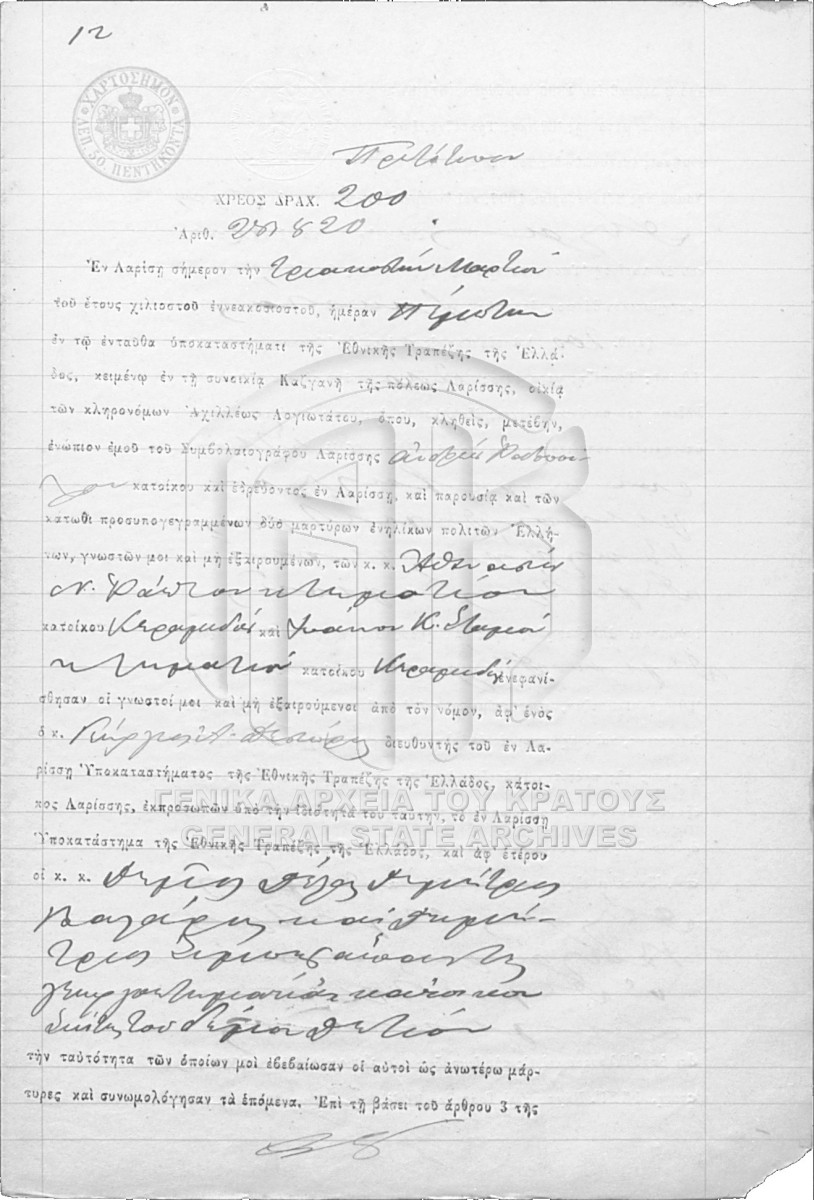 12
ΧΑΡΤΟΣΗΜΟΝ
ΛΕΠ. 50. ΠΕΝΤΗΚΟΝΤΑ
Πρωτότυπον
ΧΡΕΟΣ ΔΡΑΧ. 200
Ἀριθ. 820
Ἐν Λαρίσῃ σήμερον τὴν τριακοστὴν Μαρτίου
τοῦ ἔτους χιλιοστοῦ ἐννεακοσιοστοῦ, ἡμέραν Πέμπτην
ἐν τῷ ἐνταῦθα ὑποκαταστήματι τῆς Ἐθνικῆς Τραπέζης τῆς Ἑλλά-
δος, κειμένῳ ἐν τῇ συνοικίᾳ Καζγανῆ τῆς πόλεως Λαρίσσης, οἰκίᾳ
τῶν κληρονόμων Ἀχιλλέως Λογιωτάτου, ὅπου, κληθεὶς, μετέβην,
ἐνώπιον ἐμοῦ τοῦ Συμβολαιογράφου Λαρίσσης Ἀνδρέα
κατοίκου καὶ ἑδρεύοντος ἐν Λαρίσσῃ, καὶ παρουσίᾳ καὶ τῶν
κάτωθι προσυπογεγραμμένων δύο μαρτύρων ἐνηλίκων πολιτῶν Ἑλλή-
νων, γνωστῶν μοι καὶ μὴ ἐξαιρουμένων, τῶν κ. κ. Ἀθανασίου
Ν. Ράπτου κτηματίου
κατοίκου Κεραμιδίου καὶ Ἰωάννου Κ. Σταμου
κτηματίου κατοίκου Κεραμιδίου ἐνεφανί-
σθησαν οἱ γνωστοί μοι καὶ μὴ ἐξαιρούμενοι ἀπὸ τὸν νόμον, ἀφ' ἑνὸς
ὁ κ. Γεώργιος Α. διευθυντὴς τοῦ ἐν Λα-
ρίσσῃ Ὑποκαταστήματος τῆς Ἐθνικῆς Τραπέζης τῆς Ἑλλάδος, κάτοι-
κος Λαρίσσης, ἐκπροσωπῶν ὑπὸ τὴν ἰδιότητά του ταύτην, τὸ ἐν Λαρίσσῃ
ΓΕΝΙΚΑ ΑΡΧΕΙΑ ΤΟΥ ΚΡΑΤΟΥΣ
GENERAL STATE ARCHIVES
Ὑποκατάστημα τῆς Ἐθνικῆς Τραπέζης τῆς Ἑλλάδος, καὶ ἀφ' ἑτέρου
οἱ κ. κ. Δημήτριος
καὶ Δημή-
τριος ἅπαντες
κάτοικοι
τοῦ Δήμου
τὴν ταὐτότητα τῶν ὁποίων μοὶ ἐβεβαίωσαν οἱ αὐτοὶ ὡς ἀνωτέρω μάρ-
τυρες καὶ συνωμολόγησαν τὰ ἑπόμενα. Ἐπὶ τῇ βάσει τοῦ ἄρθρου 3 τῆς